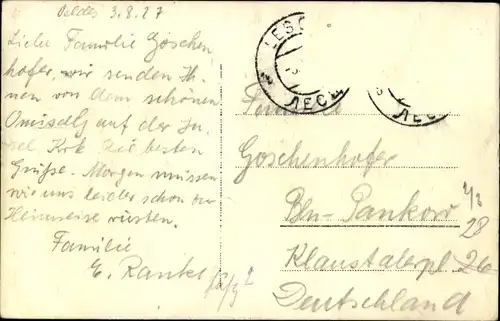 Veldes 3.8.27
Liebe Familie Goschen
hofer, wir senden Ih-
nen von dem schönen
Omisalj auf der In-
sel Krk die besten
Grüße. Morgen müssen
wir uns leider schon zur
Heimreise rüsten.
Familie
E.
LESC
ЛЕСЦ
ЛЕС
Familie
Goschenhofer
Bln-Pankow
Klaustalerpl 26
Deutschland
28